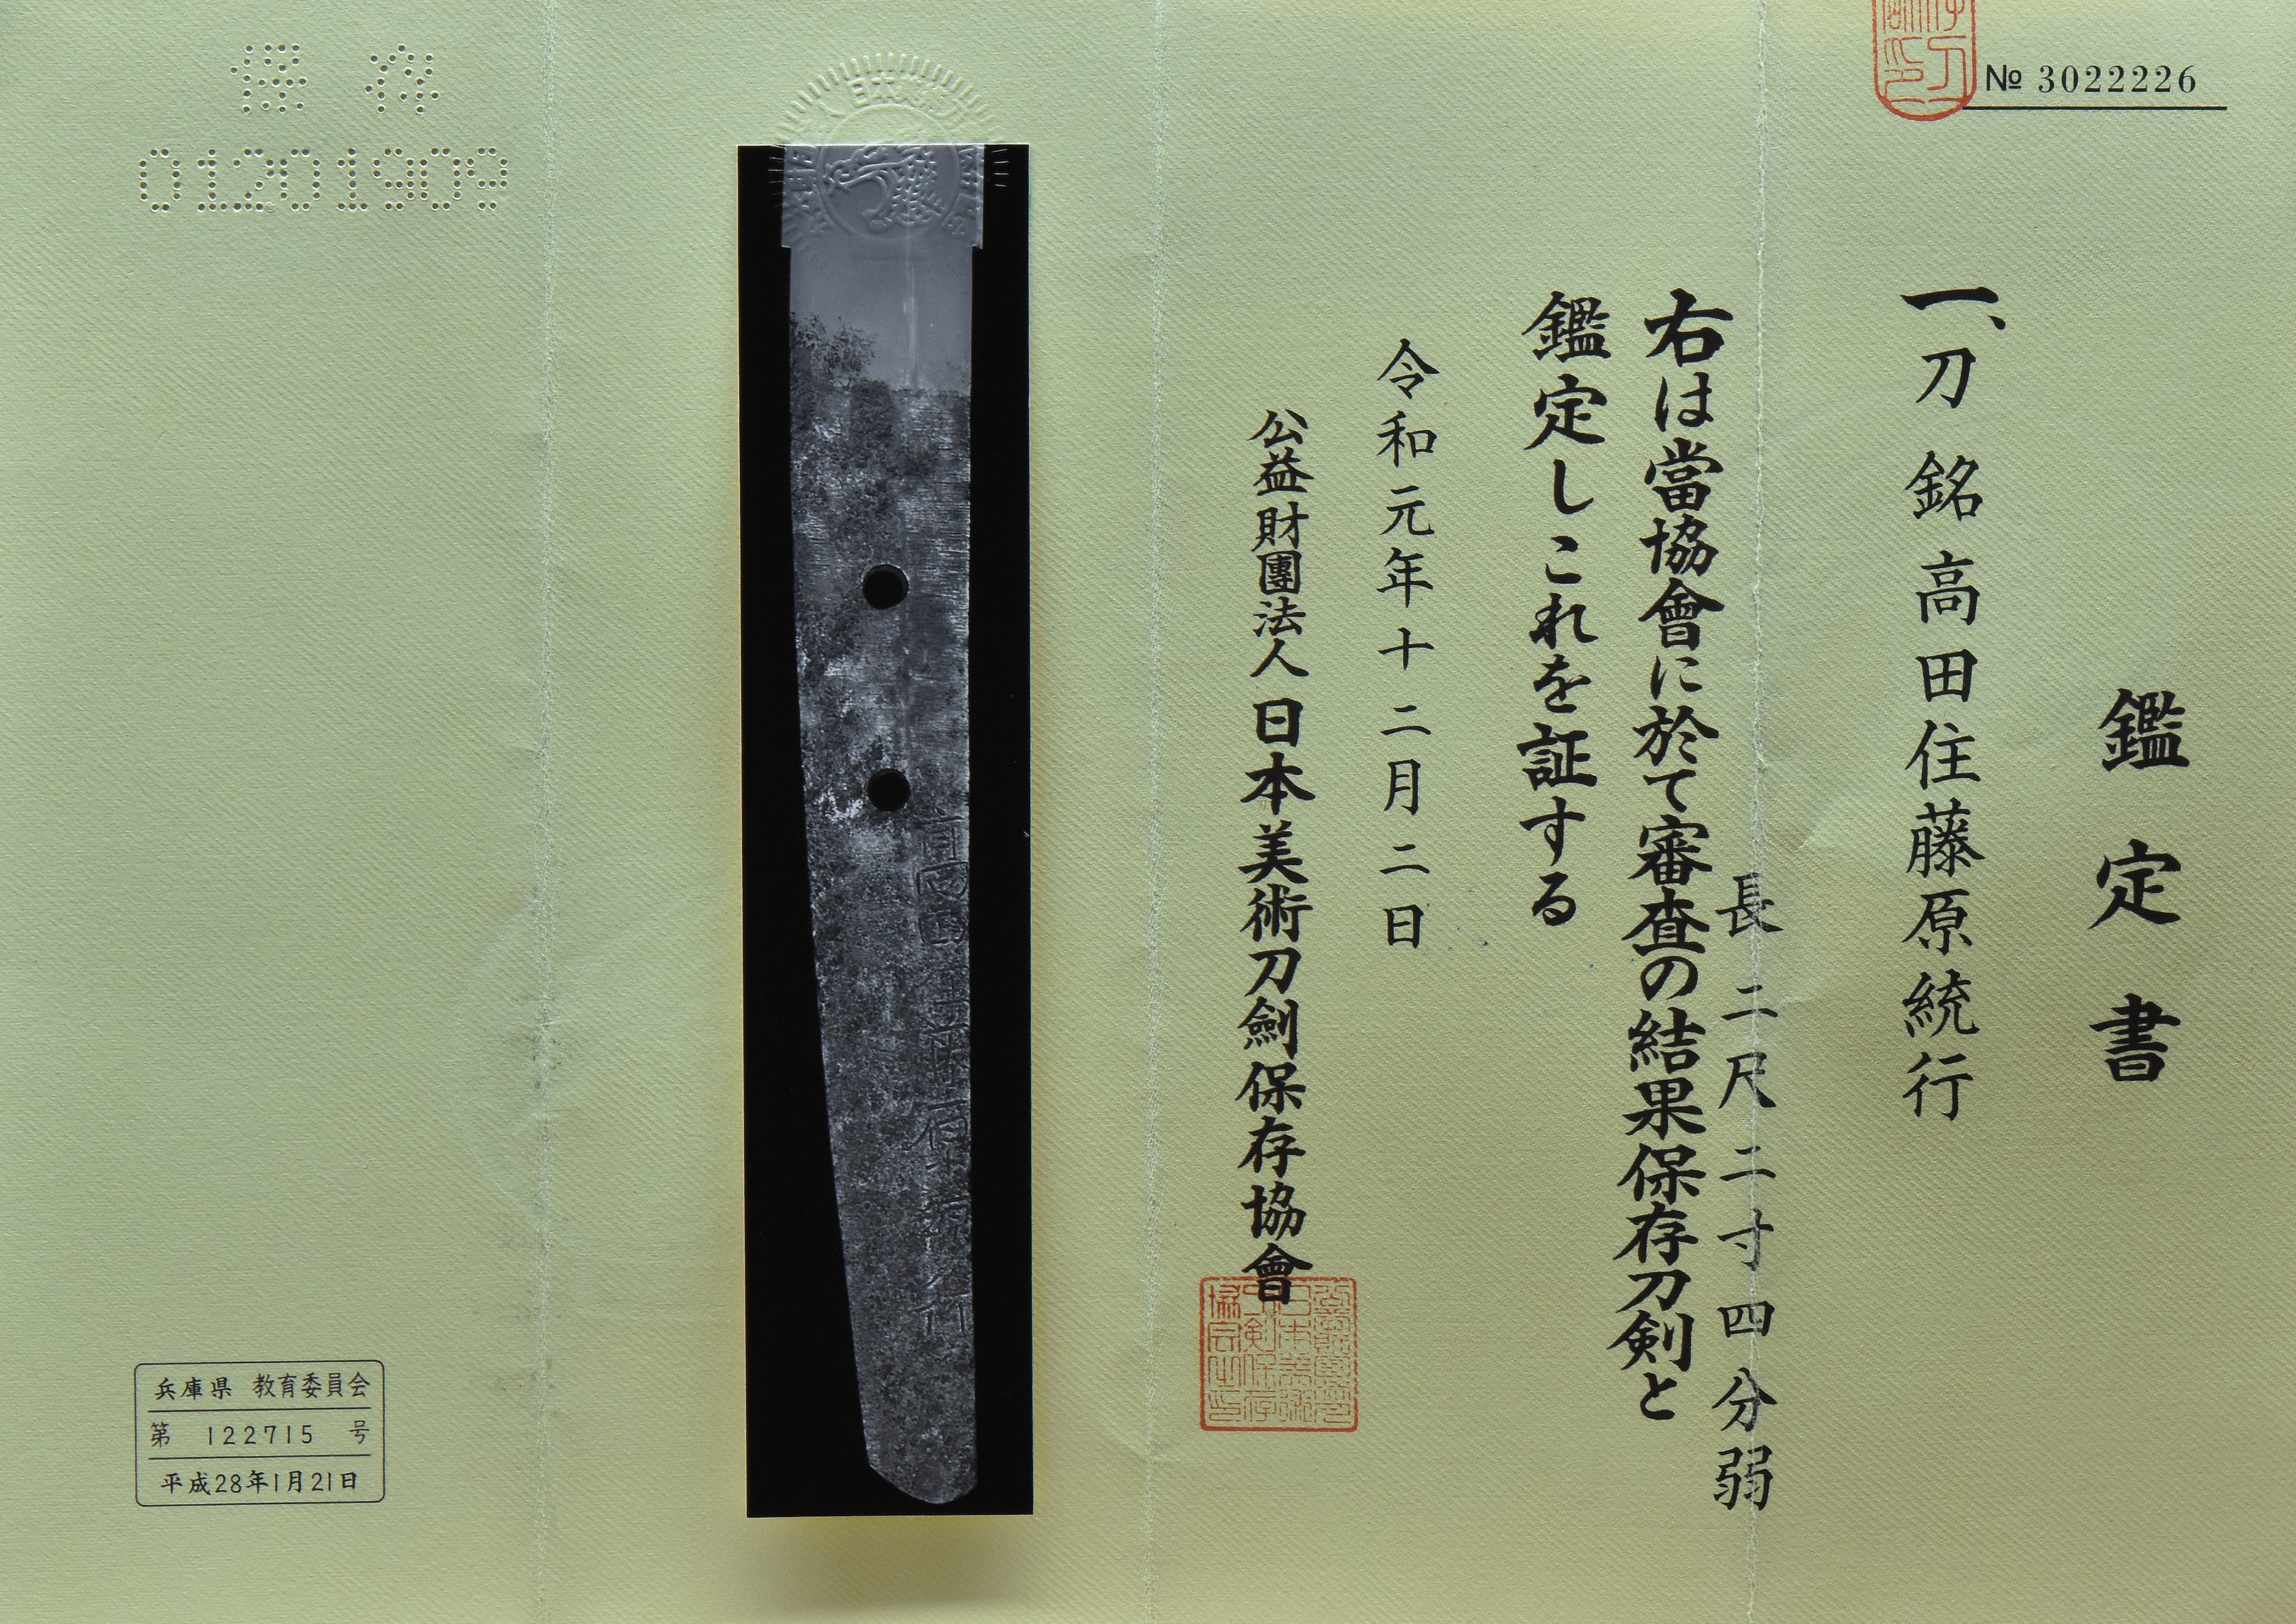 № 3022226
鑑定書
一、刀 銘 高田住藤原統行
長 二尺二寸四分弱
右は當協會に於て審査の結果保存刀剣と
鑑定しこれを証する
令和元年十二月二日
公益財團法人 日本美術刀劍保存協會
保存
01201909
兵庫県 教育委員会
第 122715 号
平成28年1月21日